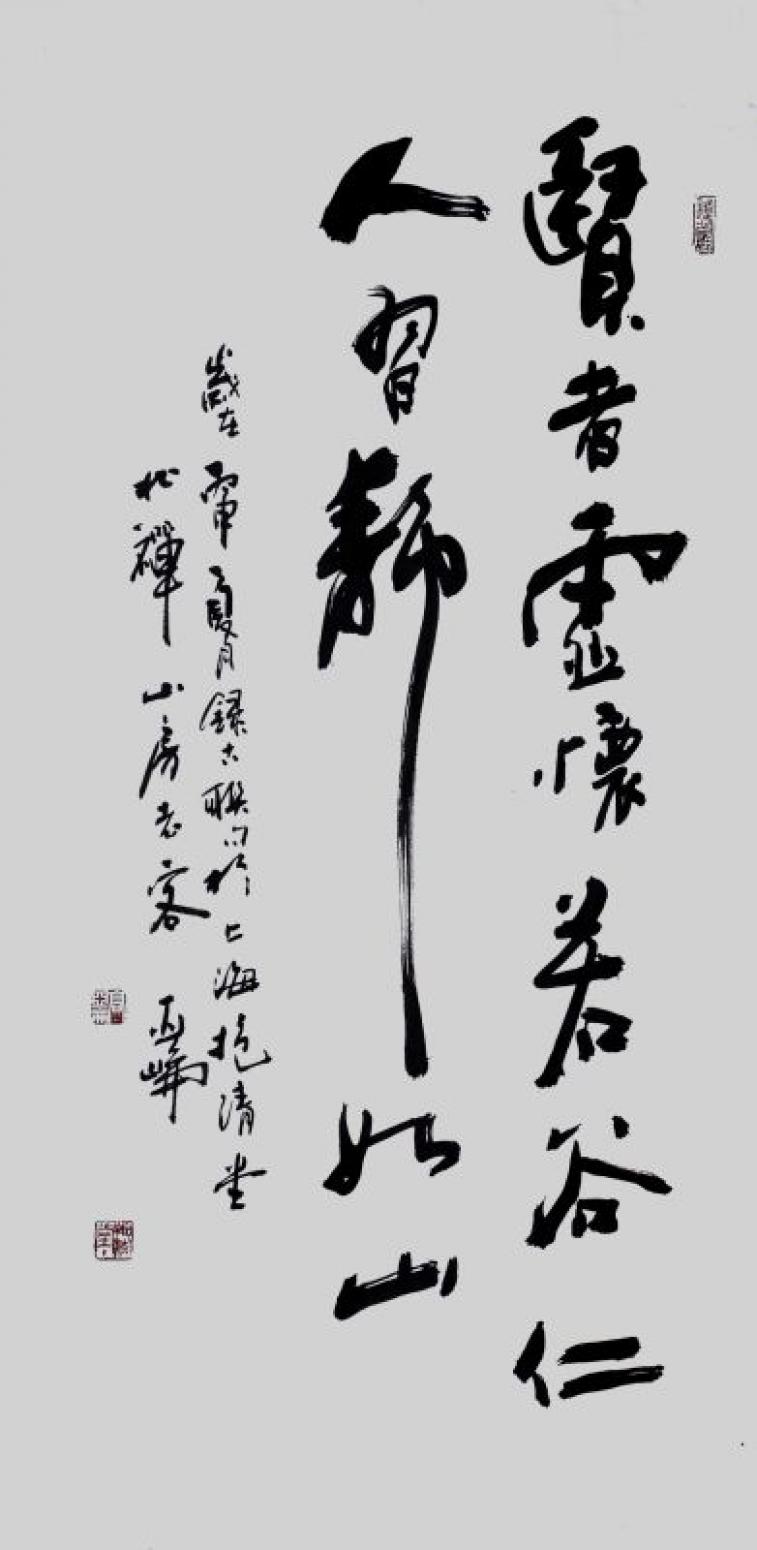 賢者虛懷若谷仁
人習靜如山
歲在丙申夏月錄古聯句於上海抱清堂
松禪山房老客